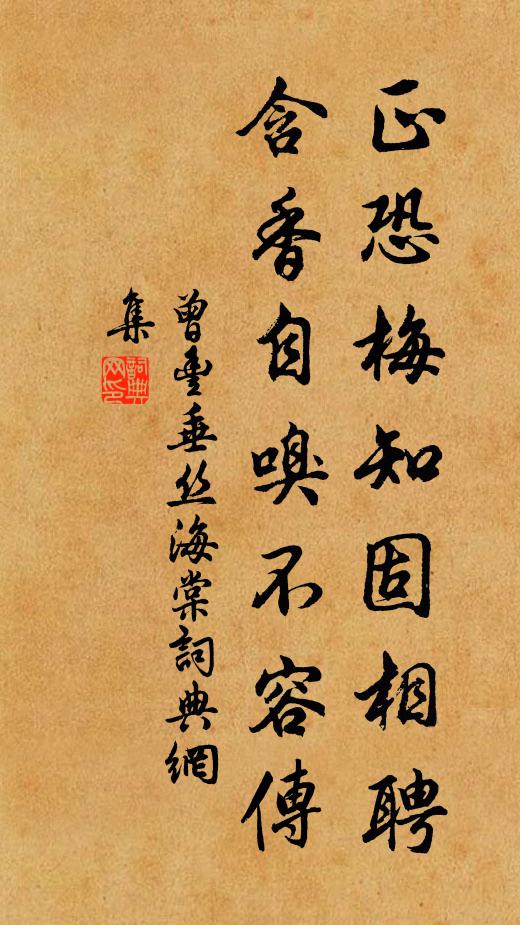 正恐梅知固相聘
含香自嗅不容傳
曾豐垂丝海棠詞典網
集
詞典
网印